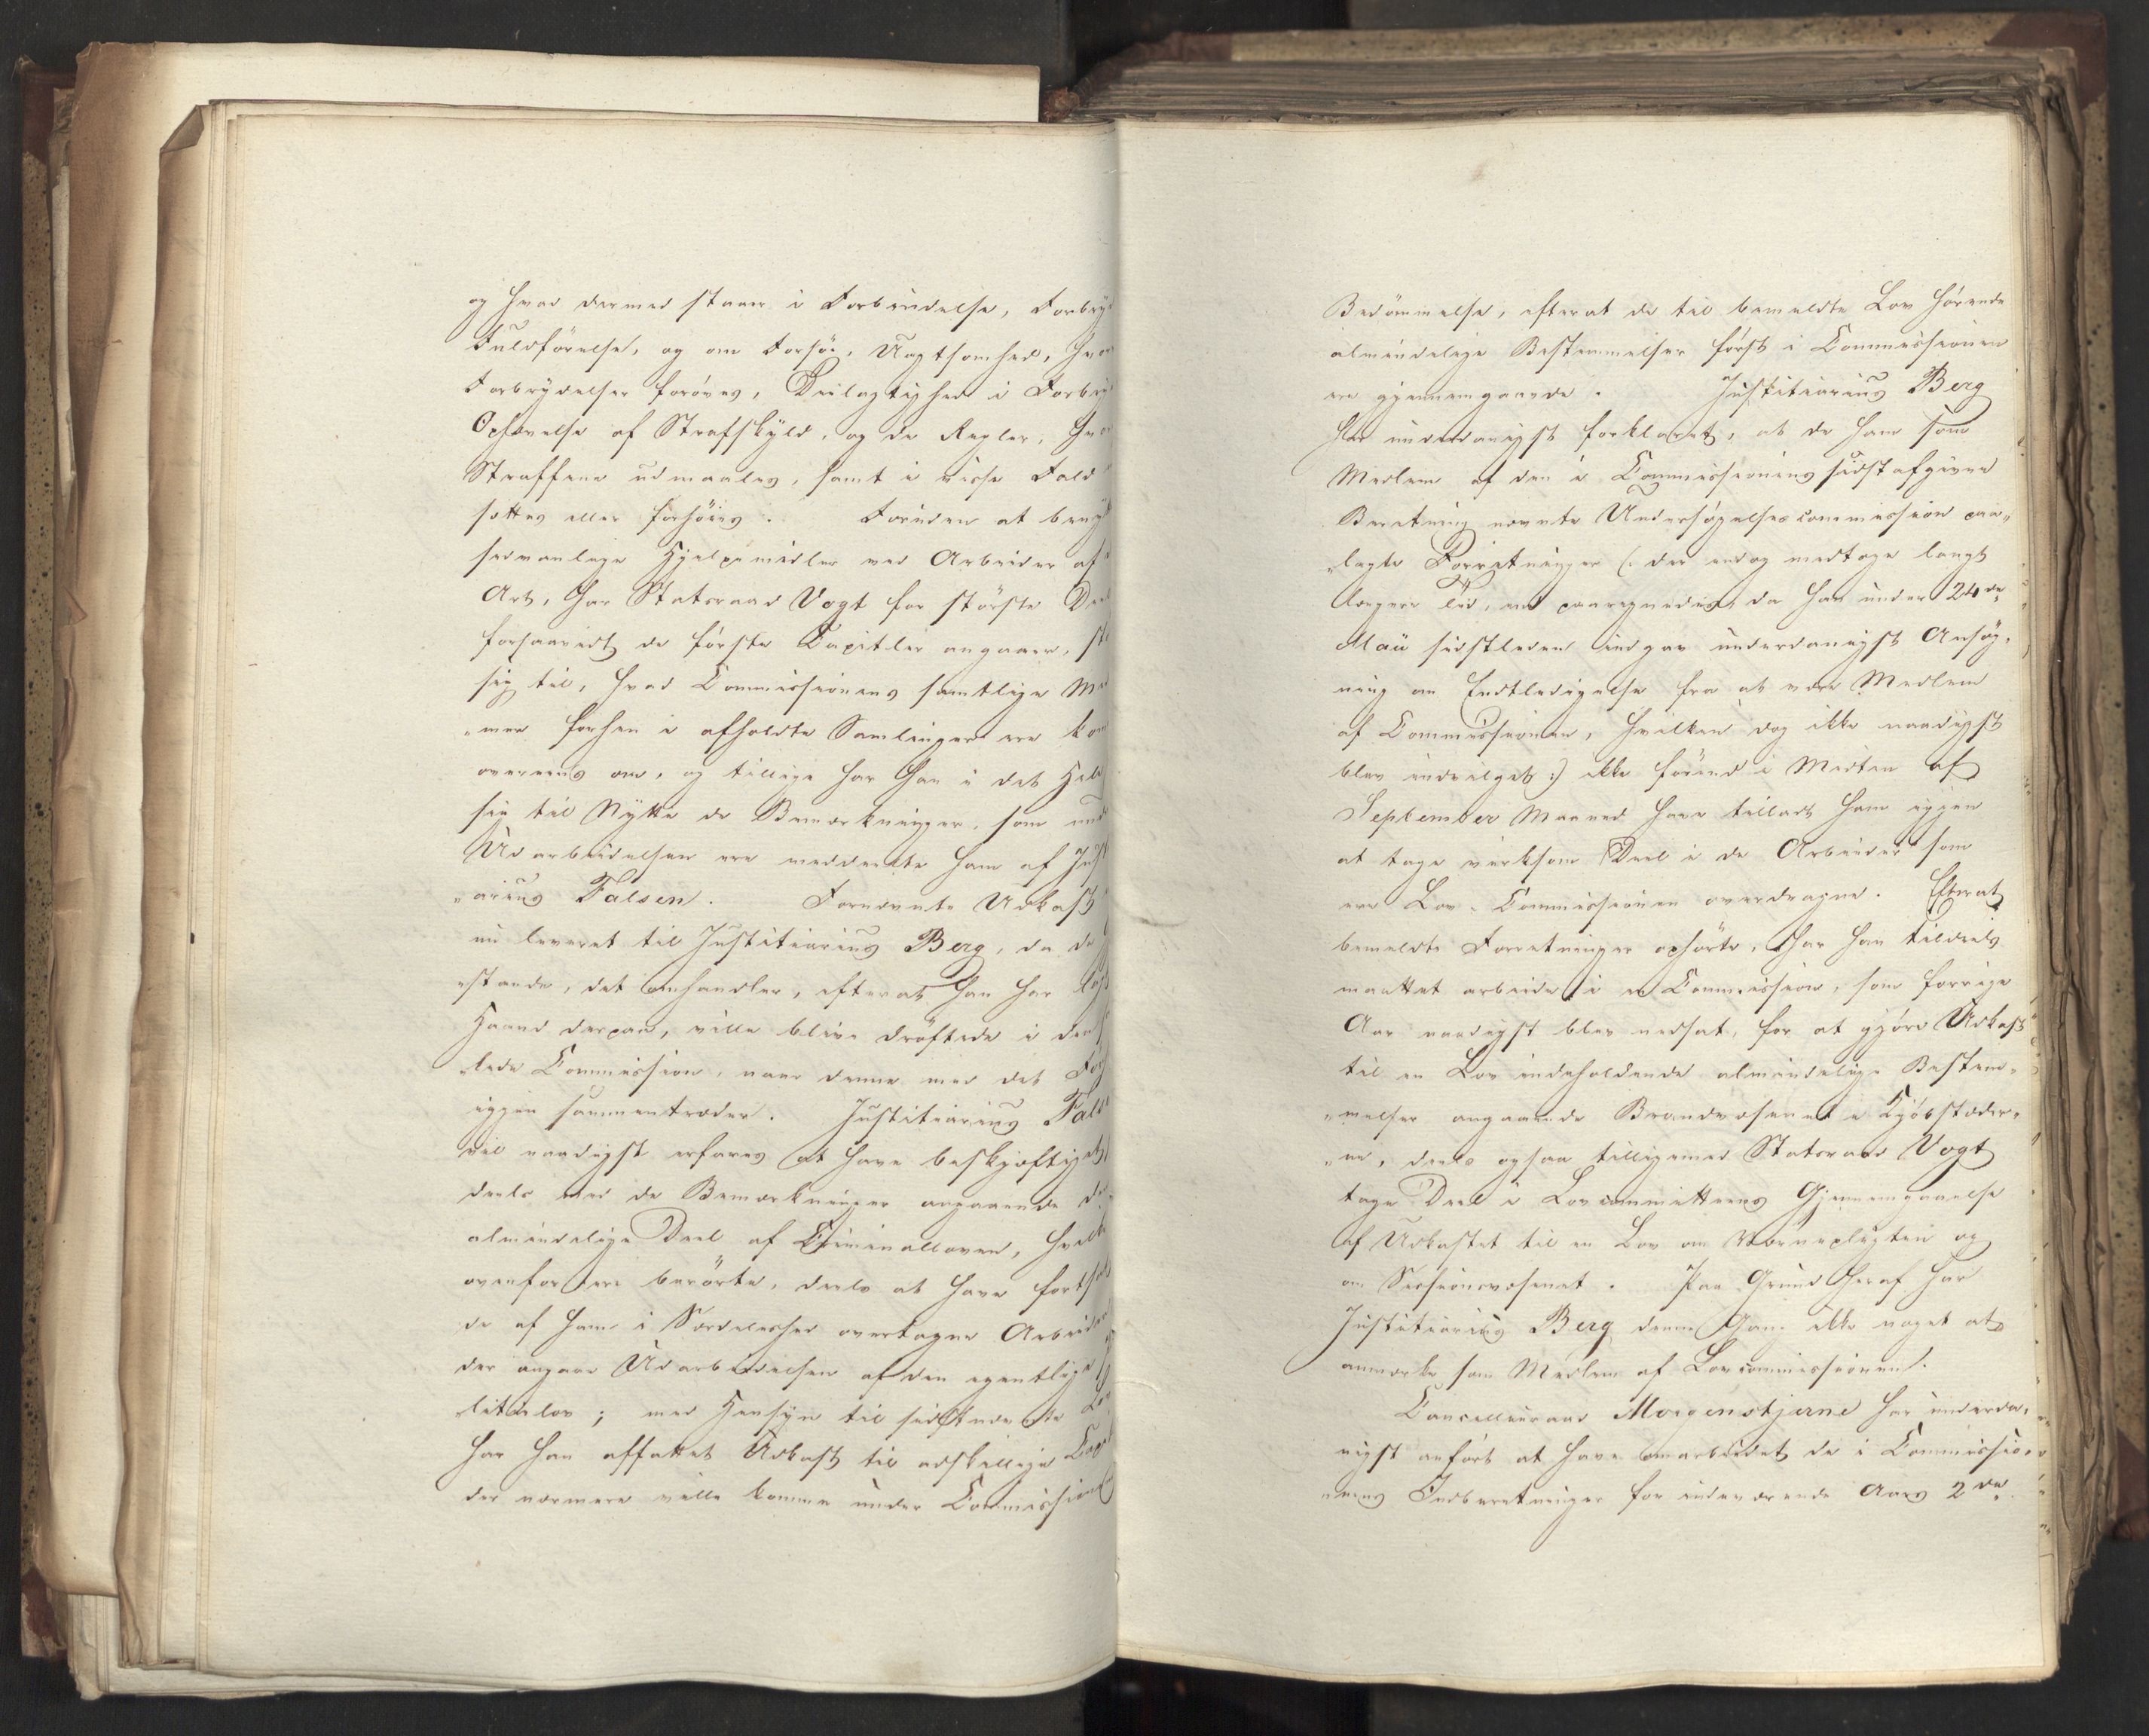 og hvad dermed staaer i Forbindelse, Forbry
Fuldførelse, og om Forsøg, Uagtsomhed, hvor
Forbrydelser forøves, Deelagtighed i Forbry
Ophævelse af Strafskyld, og de Regler, hvor
Straffene udmaales, samt i visse Fald
sættes eller forhøies. Foruden at beny
sædvanlige Hjelpemidler ved Arbeider af
Art, har Statsraad Vogt for største Deel
forsaavidt de første Capitler angaaer, 
sig til, hvad Commissionens samtlige Me
„mer forhen i afholdte Samlinger ere kom
overeens om, og tillige har han i det Hele
sig til Nytte de Bemærkninger, som und
Udarbeidelsen ere meddeelte ham af Just
„arius Falsen. Fornævnte Udkast
nu leveret til Justitiarius Berg, da de
„stande, det omhandler, efterat han har lagt
Haand derpaa, ville blive drøftede i den
„lede Commission, naar denne med det For
igjen sammentræder. Justitiarius Fals
vil naadigst erfares at have beskjæftiget
deels med de Bemærkninger angaaende d
almindelige Deel af Criminalloven, hvilke
ovenfor ere berørte, deels at have fortsat
de af ham i Særdeleshed overtagne Arbeider
der angaae Udarbeidelsen af den egentlige
litielov; med Hensyn til sidstnævnte Lov
har han affattet Udkast til adskillige Capi
der nærmere ville komme under Commissionen
Bedømmelse, efterat de til bemeldte Lov hørende
almindelige Bestemmelser først i Commissionen
ere gjennemgaaede. Justitiarius Berg
har underdanigst forklaret, at de ham som
Medlem af den i Commissionens sidst afgivne
Beretning nævnte Undersøgelsescommission paa„
„lagte Forretninger (: der endog medtoge langt
længere Tid, end paaregnedes, da han under 24de
Maii sidstleden indgav underdanigst Ansøg„
ning om Entledigelse fra at være Medlem
af Commissionen, hvilken dog ikke naadigst
blev indvilget :) ikke førend i Midten af
September Maaned have tilladt ham igjen
at tage virksom Deel i de Arbeider som
ere Lov-Commissionen overdragne. Efterat
bemeldte Forretninger ophørte, har han tildeels
maattet arbeide i en Commission, som forrige
Aar naadigst blev nedsat, for at gjøre Udkast
til en Lov indeholdende almindelige Bestem„
„melser angaaende Brandvæsenet i Kjøbstæder„
„ne, deels ogsaa tilligemed Statsraad Vogt
tage Deel i Lovcommitteens Gjennemgaaelse
af Udkastet til en Lov om Værnepligten og
om Sessionsvæsenet. Paa Grund heraf har
Justitiarius Berg denne Gang ikke noget at
anmærke som Medlem af Lovcommissionen.
Cancelliraad Morgenstjerne har underda„
nigst anført at have omarbeidet de i Commissio„
„nens Indberetninger for indeværende Aars 2det